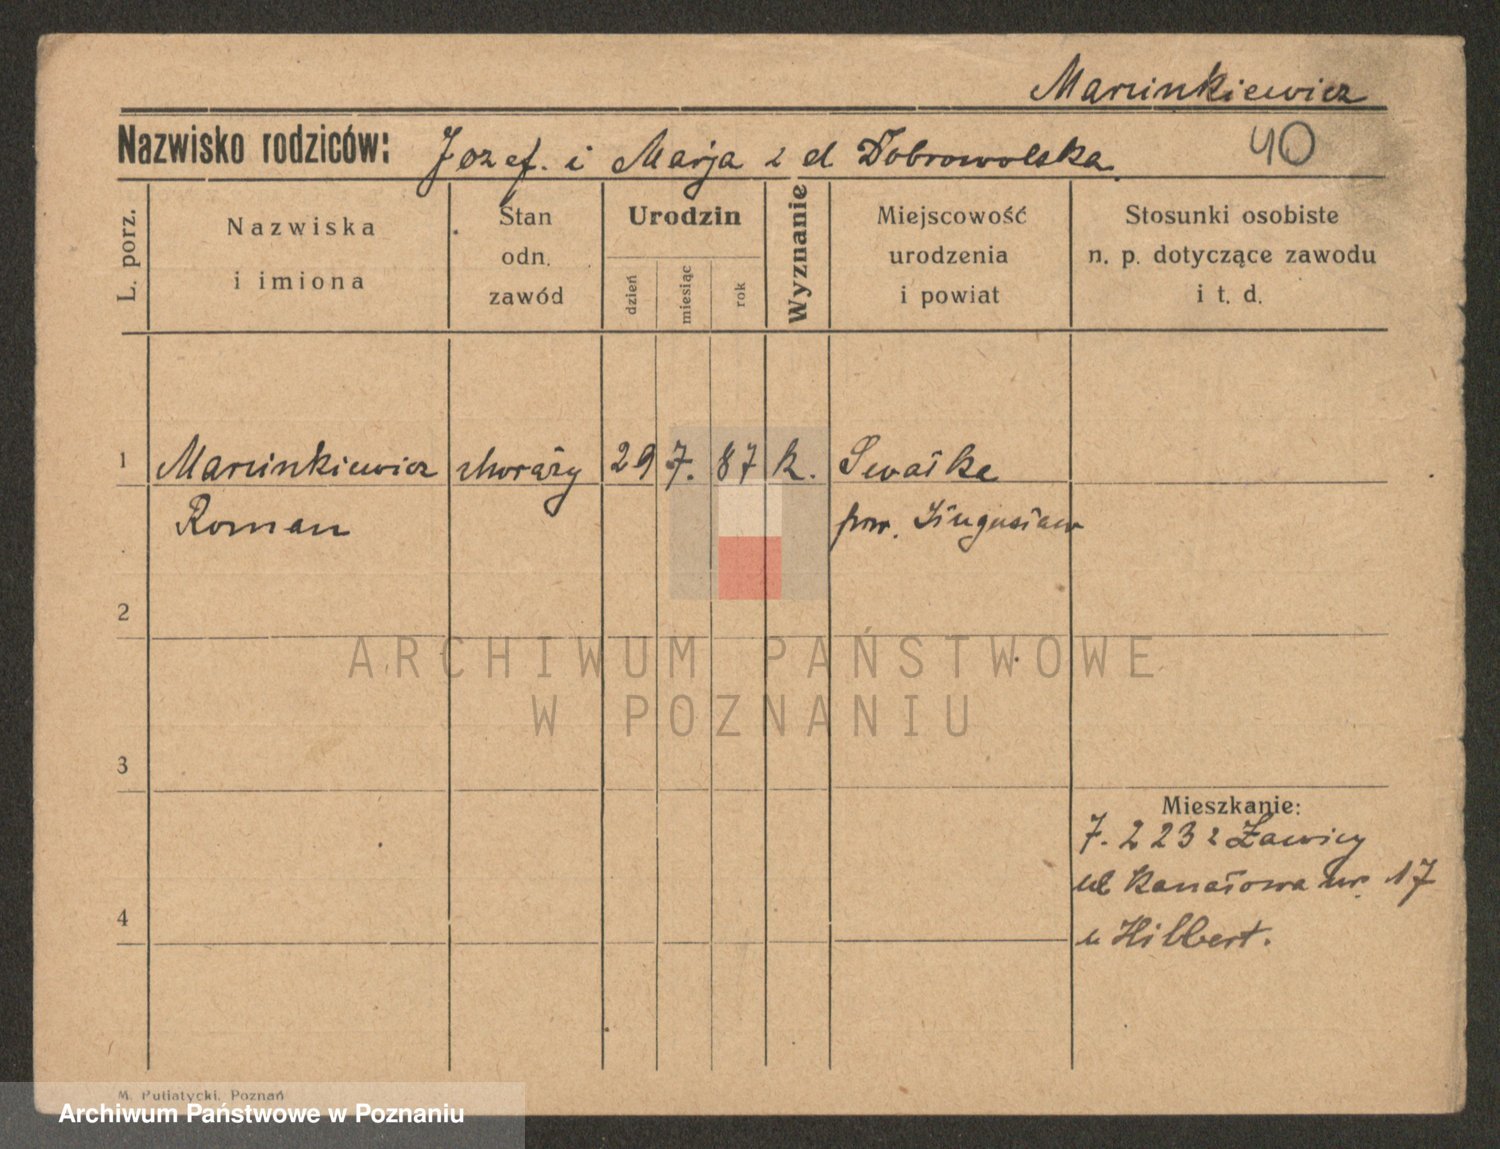 Marcinkiewicz
40
Nazwisko rodziców: Jozef. i Marja z d Dobrowolska
L. porz.
Nazwiska
i imiona
Stan
odn.
zawód
Urodzin
dzień
miesiąc
rok
Wyznanie
Miejscowość
urodzenia
i powiat
Stosunki osobiste
n. p. dotyczące zawodu
i t. d.
1 Marcinkiewicz chorąży 29 7. 87 k.
Roman pow.
2
ARCHIWUM PAŃSTWOWE
W POZNANIU
3
Mieszkanie:
7. 2 23 z Ławicy
ul Kanałowa nr. 17
4
u Hilbert.
M. Putiatycki, Poznań
Archiwum Państwowe w Poznaniu